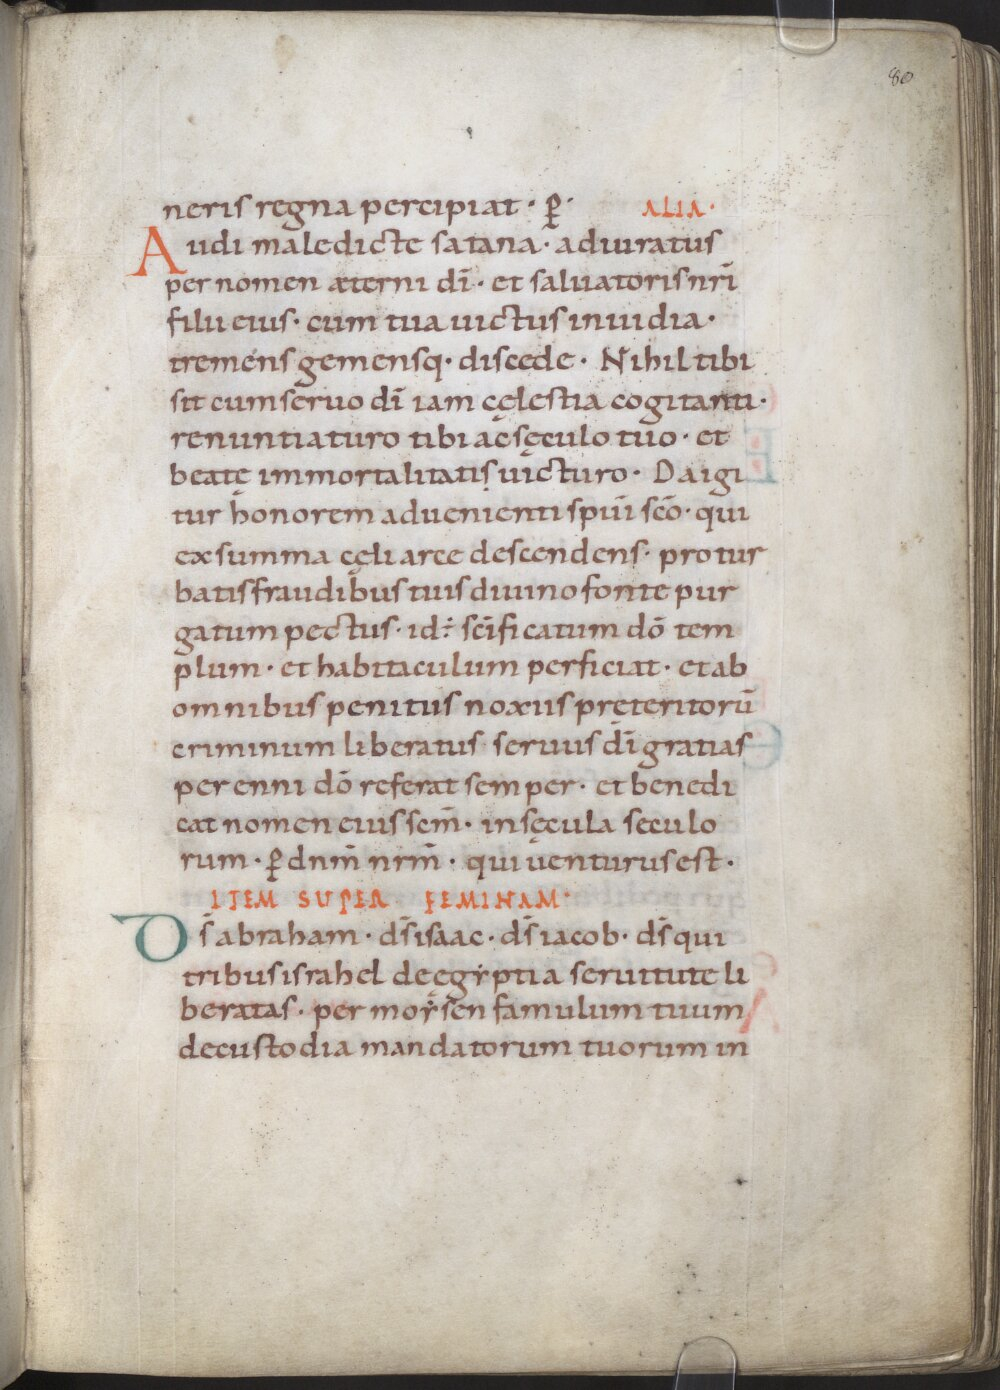 80
neris regna percipiat · p̱· ALIA·
Audi maledicte satana· adiuratus
per nomen æterni dī· et saluatoris nrī
filii eius· cum tua uictus inuidia·
tremens gemensq· discede· Nihil tibi
sit cum seruo dī iam cęlestia cogitanti·
renuntiaturo tibi ac sęculo tuo· et
beatę immortalitatis uicturo· Da igi
tur honorem aduenienti spūi scō· qui
ex summa cęli arce descendens· protur
batis fraudibus tuis diuino fonte pur
gatum pectus· id÷ scīficatum dō tem
plum· et habitaculum perficiat· et ab
omnibus penitus noxiis preteritorū
criminum liberatus seruus dī gratias
perenni dō referat semper· et benedi
cat nomen eius scm̄· in sęcula seculo
rum· p̱ dnm̄ nrm̄· qui uenturus est·
ITEM SUPER FEMINAM·
Ds̄ abraham· ds̄ isaac· ds̄ iacob· ds̄ qui
tribus israhel de ęgẏptia seruitute li
beratas· per moẏsen famulum tuum
de custodia mandatorum tuorum in